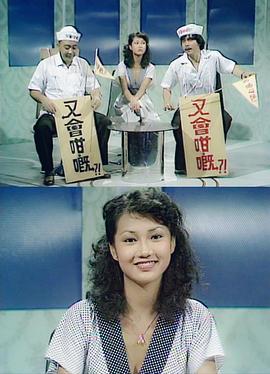 又會咁嘅?!
又會咁嘅?!